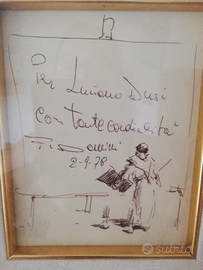 Per Luciano Dusi
con tanta cordialità
2-9-78
subito